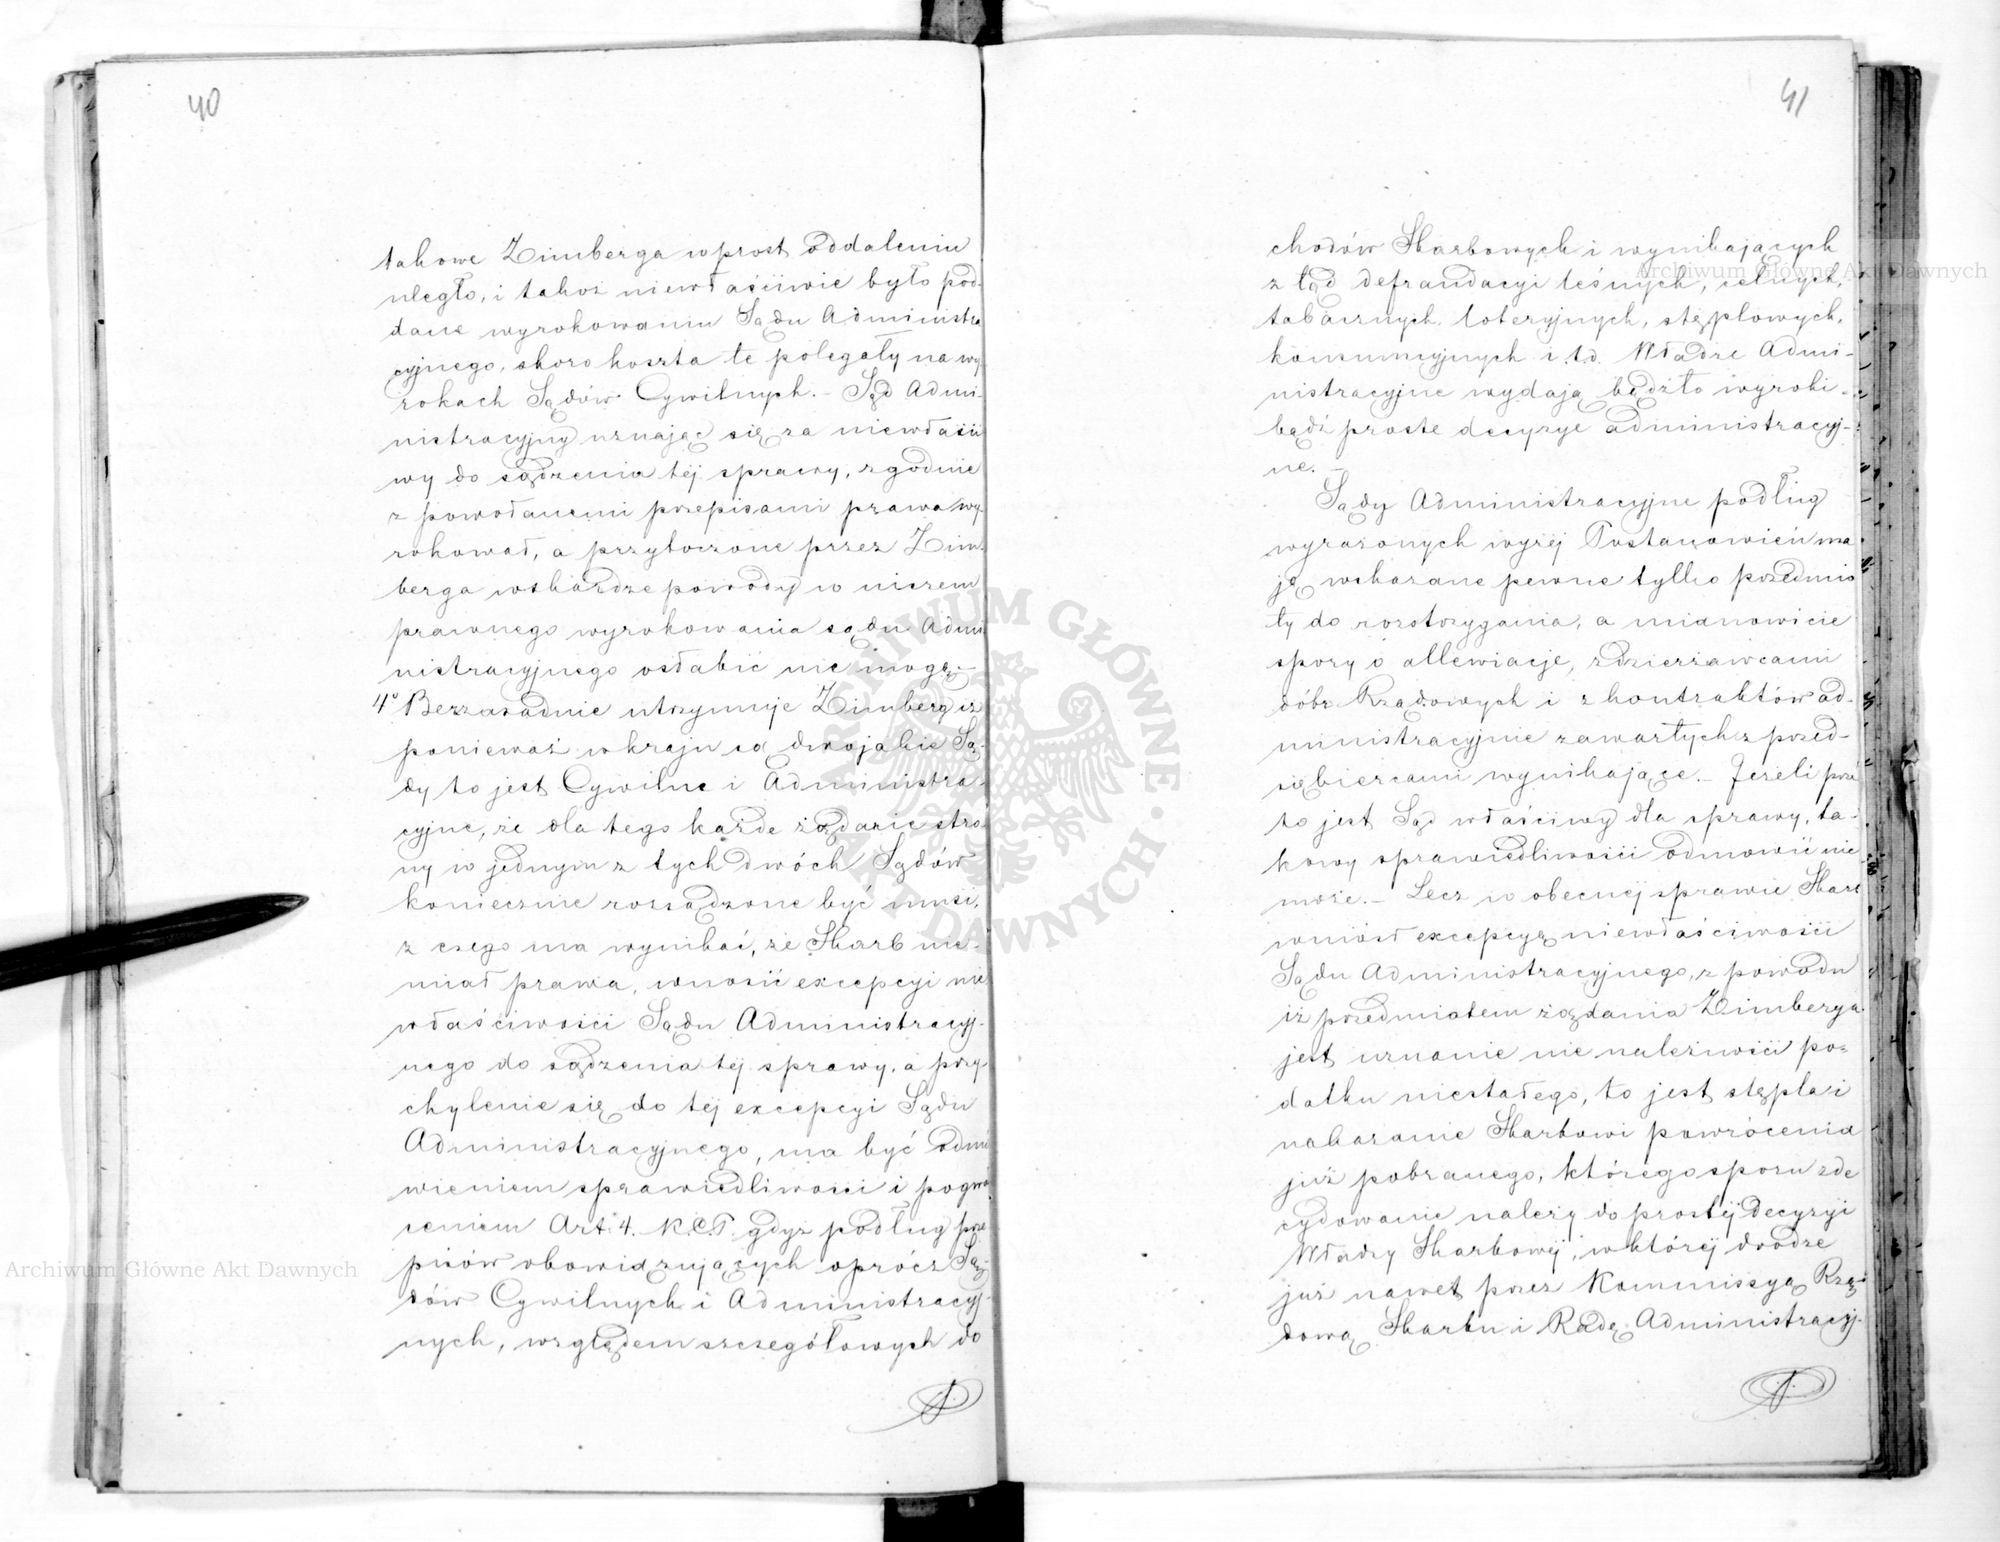 40
takowe Zimberga wprost oddaleniu
uległo, i takoż niewłaściwie było pod-
dane wyrokowaniu Sądu Administra
cyjnego, skoro koszta te polegały na wy-
rokach Sądów Cywilnych. – Sąd Admi-
nistracyjny uznając się za niewłaści
wy do sądzenia téj sprawy, zgodnie
z powołanemi przepisami prawa wy-
rokował, a przytoczone przez Zim-
berga w skardze powody w niczem
prawnego wyrokowania sądu Admi
nistracyjnego osłabić nie mogą. –
4° Bezzasadnie utrzymuje Zimberg iż
ponieważ w kraju są dwojakie Są-
dy to jest Cywilne i Administra-
cyjne, że dla tego każde żądanie stro-
ny w jednym z tych dwóch Sądów
koniecznie rozsądzone być musi,
z czego ma wynikać, że Skarb nie-
miał prawa, wnosić excepcyi nie
właściwości Sądu Administracyj-
nego do sądzenia téj sprawy, a przy-
chylenie się do téj excepcyi Sądu
Administracyjnego, ma być odmó
wieniem sprawiedliwości i pogwał
ceniem Art. 4. K.C.P. gdyż podług prze
pisów obowiązujących oprócz Są-
dów Cywilnych i Administracyj-
nych, względem szczegółowych do
41
chodów Skarbowych i wynikających
z tąd defraudacyi leśnych, celnych,
tabacznych, loteryjnych, stęplowych,
konsumcyjnych i.t.d. Władze Admi-
nistracyjne wydają bądźto wyroki-
bądź proste decyzye administracyj-
ne. –
Sądy Administracyjne podług
wyrażonych wyżéj Postanowień ma
ją wskazane pewne tylko przedmio
ty do rozstrzygania, a mianowicie
spory o allewiacje, z dzierżawcami
dóbr Rządowych i z kontraktów ad-
ministracyjnie zawartych z przed-
siębiercami wynikające. – Jeżeli prze
to jest Sąd właściwy dla sprawy, ta-
kowy sprawiedliwości odmowić nie
może. – Lecz w obecnéj sprawie Skarb
wniósł excepcyę niewłaściwości
Sądu Administracyjnego, z powodu
iż przedmiotem żądania Zimberga
jest uznanie nie należności po-
datku niestałego, to jest stępla i
nakazanie Skarbowi powrócenia
już pobranego, którego sporu zde
cydowanie należy do prostéj decyzyi
Władzy Skarbowéj, w któréj drodze
już nawet przez Kommissyą Rzą-
dową Skarbu i Radę Administracyj-